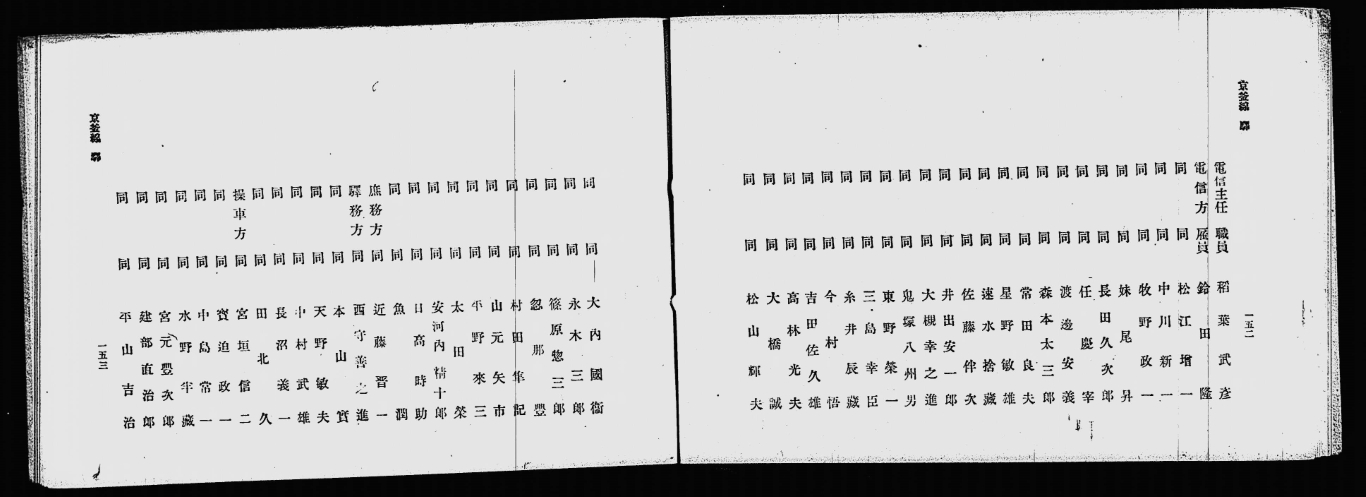 京釜線 驛
一五二
電信主任 職員 稻葉武彦
電信方 雇員 鈴田隆
同 同 松江增一
同 同 中川新一
同 同 牧野政一
同 同 妹尾昇
同 同 長田久次郎
同 同 任慶宰
同 同 渡邊安義
同 同 森本太三郎
同 同 常田良夫
同 同 星野敏雄
同 同 速水捨藏
同 同 佐藤伴次
同 同 井出安一郎
同 同 大槻幸之進
同 同 鬼塚八州男
同 同 東野榮一
同 同 三島幸臣
同 同 糸井辰藏
同 同 今村悟
同 同 吉田佐久雄
同 同 高林光夫
同 同 大橋誠
同 同 松山輝夫
同 同 大內國衞
同 同 永木三郎
同 同 篠原惣三郎
同 同 忽那豐
同 同 村田隼記
同 同 山元矢市
同 同 平野來三
同 同 太田榮
同 同 安河內精十郎
同 同 日高時助
同 同 魚潤
庶務方 同 近藤晋一
驛務方 同 西守善之進
同 同 本山實
同 同 天野敏夫
同 同 中村武雄
同 同 長沼義一
同 同 田北久
操車方 同 宮垣信二
同 同 寶迫政一
同 同 中島常一
同 同 水野半藏
同 同 宮元豐次郎
同 同 建部直治郎
同 同 平山吉治
京釜線 驛
一五三